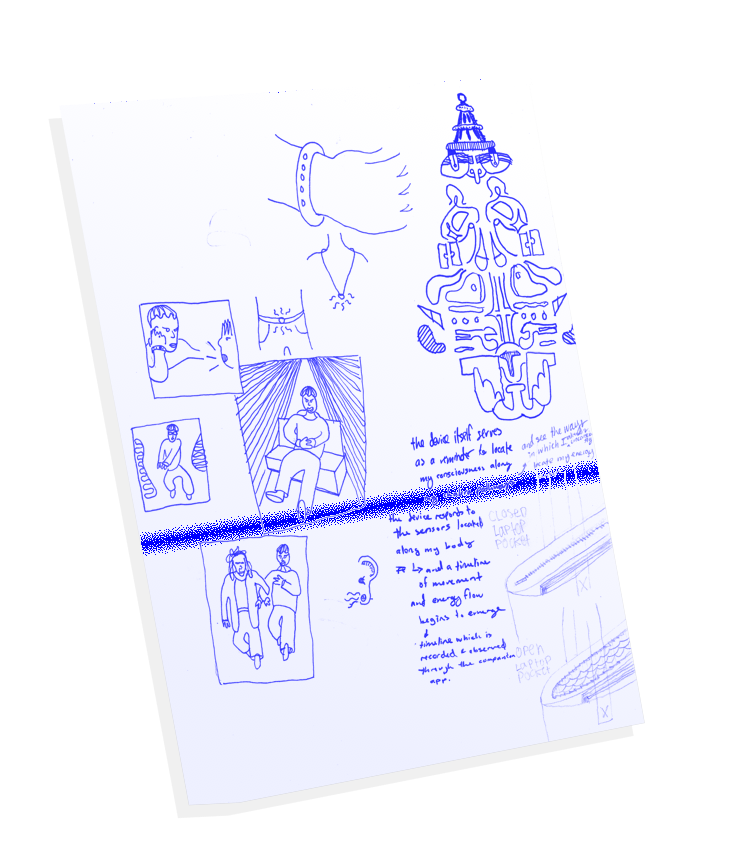 the device itself serves
as a reminder to locate
my consciousness along
and see the ways
in which I
locate my energy
the device responds to
the sensors located
along my body
↳ and a timeline
of movement
and energy flow
begins to emerge
&
timeline which is
recorded & observed
through the companion
app.
CLOSED
Laptop
Pocket
X
open
Laptop
Pocket
X